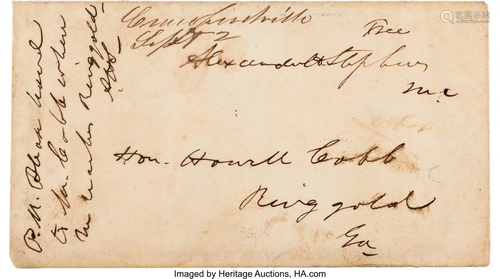 Crawfordville
Sept 2
Free
Alexander H Stephens
M.C.
Hon. Howell Cobb
Ringgold
Ga
P.M. Please hand
to Mr. Cobb when
he reaches Ringgold
AHS
Imaged by Heritage Auctions, HA.com